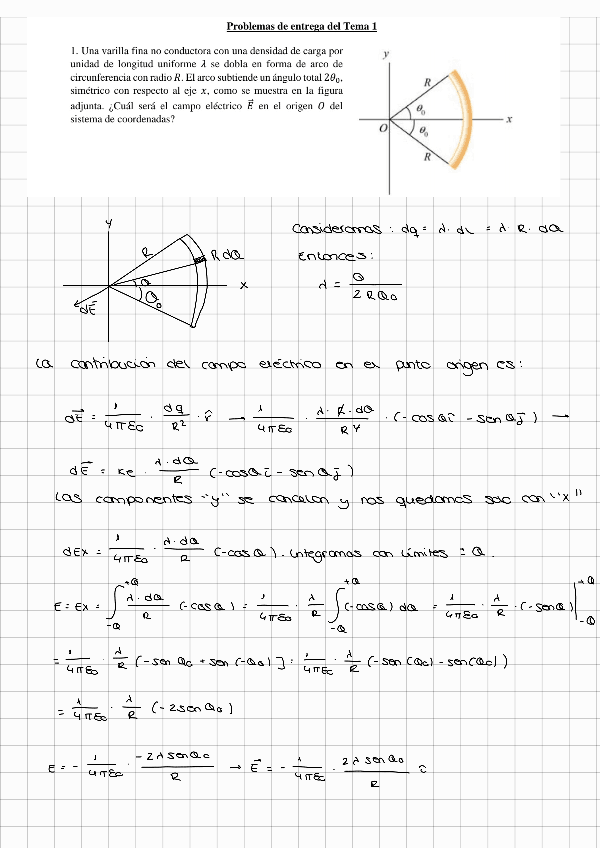 Problemas de entrega del Tema 1
1. Una varilla fina no conductora con una densidad de carga por
unidad de longitud uniforme λ se dobla en forma de arco de
circunferencia con radio R. El arco subtiende un ángulo total 2θ₀,
simétrico con respecto al eje x, como se muestra en la figura
adjunta. ¿Cuál será el campo eléctrico E⃗ en el origen O del
sistema de coordenadas?
y
R
θ₀
θ₀
O
x
R
y
R
R dθ
θ
θ₀
x
dE⃗
Consideramos : dq = λ · dL = λ · R · dθ
Entonces:
λ = Q / 2Rθ₀
La contribución del campo eléctrico en el punto origen es:
dE⃗ = 1/4πε₀ · dq/R² · r̂ → 1/4πε₀ · λ · R · dθ / R² · (-cosθ i⃗ - senθ j⃗) →
dE⃗ = Ke · λ · dθ / R (-cosθ i⃗ - senθ j⃗)
Las componentes "y" se cancelan y nos quedamos solo con "x"
dEx = 1/4πε₀ · λ · dθ / R (-cosθ). Integramos con límites ± θ.
E = Ex = ∫₋θ⁺θ λ · dθ / R (-cosθ) = 1/4πε₀ · λ/R ∫₋θ⁺θ (-cosθ) dθ = 1/4πε₀ · λ/R · (-senθ) |₋θ⁺θ
= 1/4πε₀ · λ/R (-senθ₀ + sen(-θ₀)] = 1/4πε₀ · λ/R (-sen(θ₀) - sen(θ₀))
= 1/4πε₀ · λ/R (-2senθ₀)
E = - 1/4πε₀ · -2λsenθ₀ / R → E⃗ = - 1/4πε₀ · 2λsenθ₀ / R î